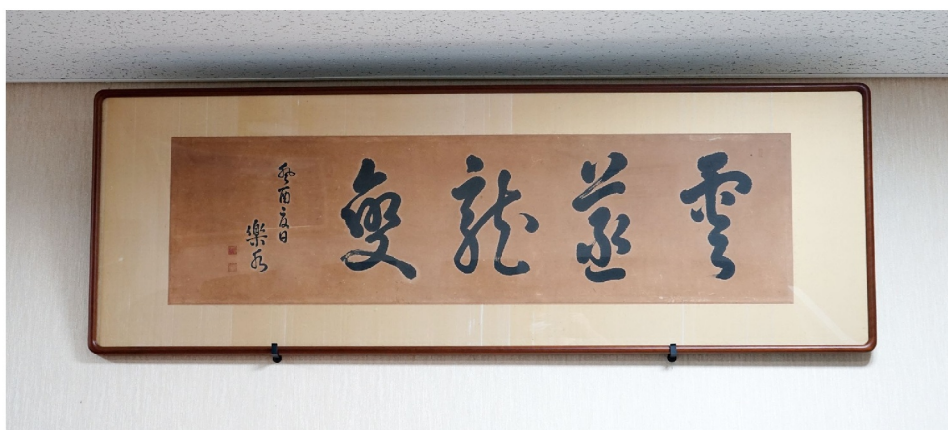 雲蒸龍變
癸酉夏日
樂水